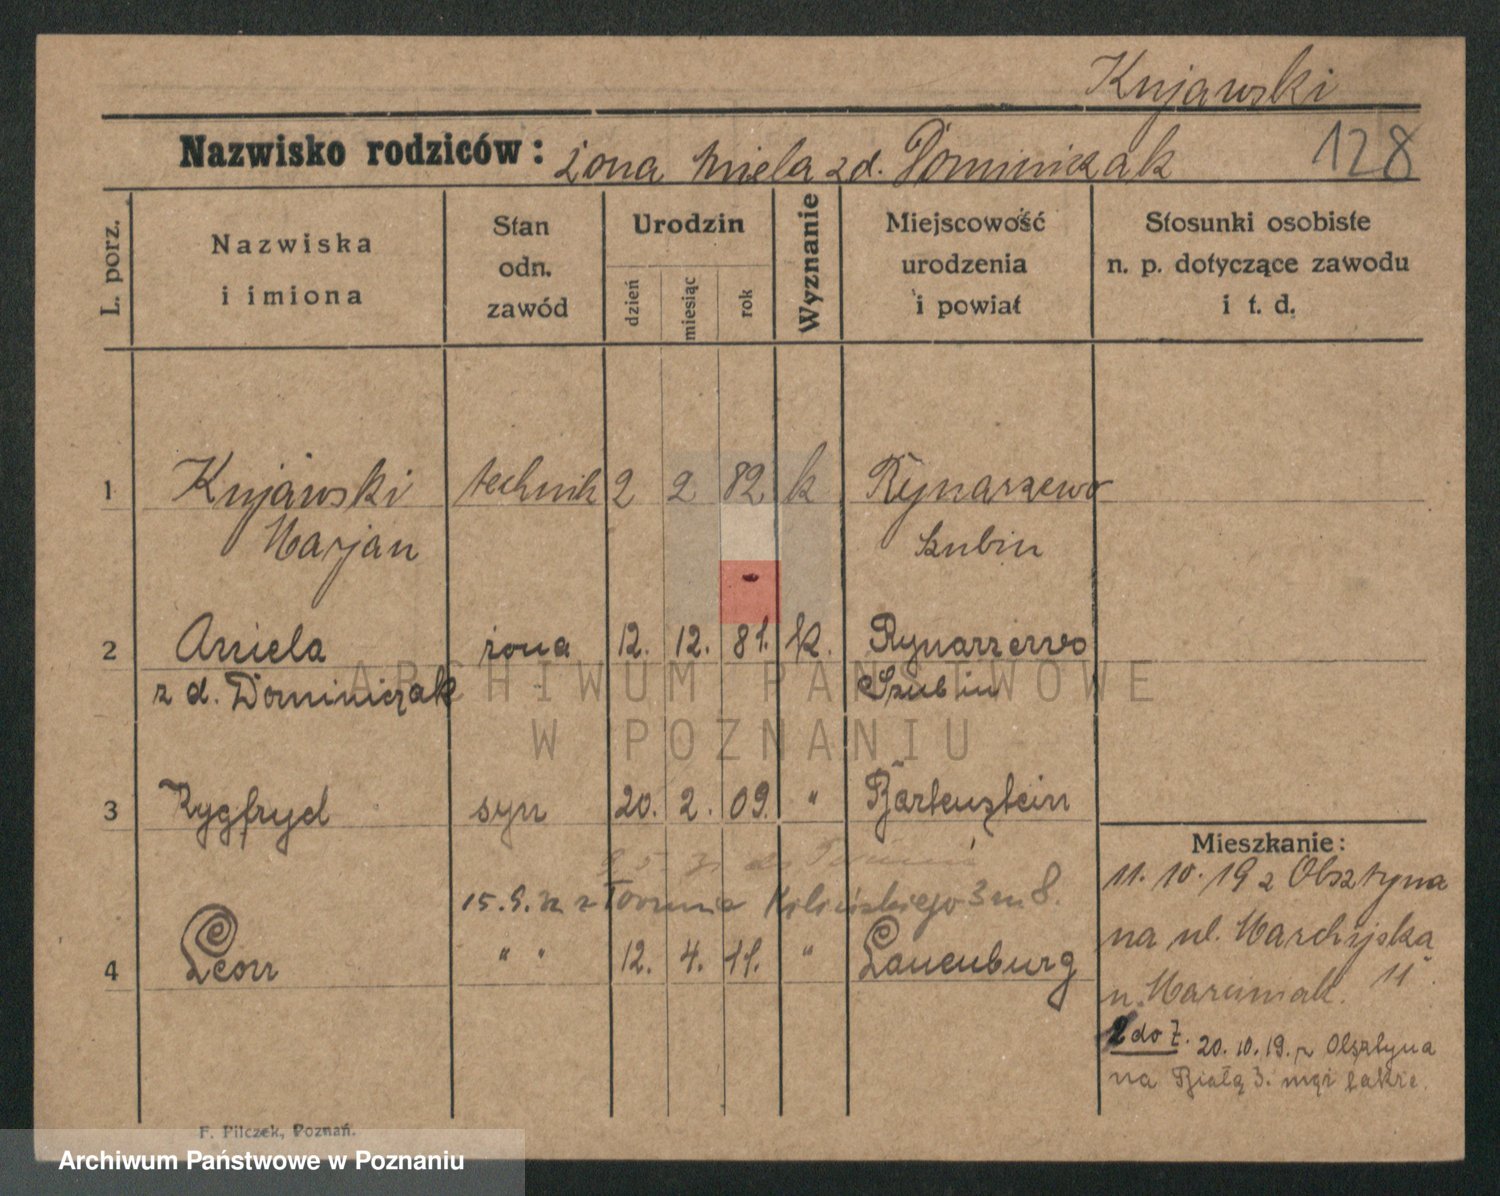 Kujawski
Nazwisko rodziców: żona Aniela zd. Dominiczak 128
L. porz.
Nazwiska
i imiona
Stan
odn.
zawód
Urodzin
dzień
miesiąc
rok
Wyznanie
Miejscowość
urodzenia
i powiat
Stosunki osobiste
n. p. dotyczące zawodu
i t. d.
1 Kujawski technik 2 2 82 k Rynarzewo
Marjan Szubin
2 Aniela żona 12. 12. 81. k. Rynarzewo
z d. Dominiczak Szubin
3 Zygfryd syn 20. 2. 09. " Bartenstein
Mieszkanie:
11. 10. 19 z Olsztyna
15. 9. z Torunia Kilińskiego 3 m. 8.
na ul.
4 Leon " " 12. 4. 11. " Lauenburg
u. Marciniak. 11
2 do Z. 20. 10. 19. z Olsztyna
na Białą 3.
F. Pilczek, Poznań.
ARCHIWUM PAŃSTWOWE
W POZNANIU
Archiwum Państwowe w Poznaniu